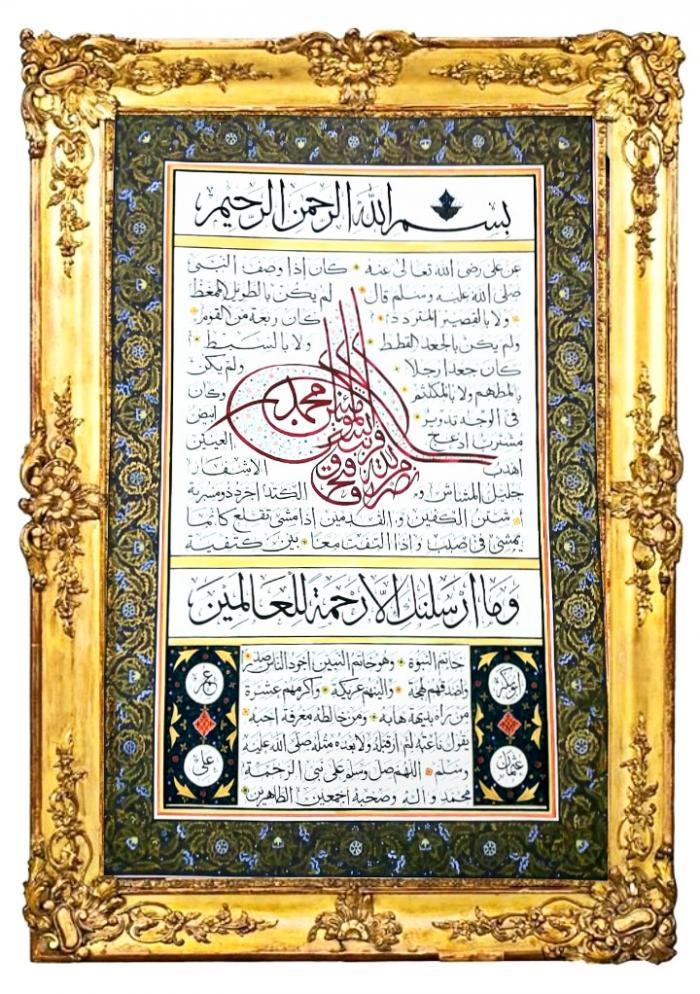 بسم الله الرحمن الرحيم
عن على رضى الله تعالى عنه كان إذا وصف النبى
صلى الله عليه وسلم قال لم يكن بالطويل الممغط
ولا بالقصير المتردد كان ربعة من القوم
ولم يكن بالجعد القطط ولا بالسبط
كان جعدا رجلا ولم يكن
بالمطهم ولا بالمكلثم وكان
فى الوجه تدوير ابيض
مشرب ادعج العينين
اهدب الاشفار
جليل المشاش و الكتد اجرد ذو مسربة
شثن الكفين والقدمين اذا مشى تقلع كانما
يمشى فى صبب واذا التفت معا بين كتفيه
محمد
نصر من الله
وفتح قريب
وبشر المؤمنين
وما ارسلنك الا رحمة للعالمين
خاتم النبوة وهو خاتم النبين اجود الناس صدرا
واصدقهم لهجة والينهم عريكة واكرمهم عشرة
من راه بديهة هابه ومن خالطه معرفة احبه
يقول ناعته لم ار قبله ولا بعده مثله صلى الله عليه
وسلم اللهم صل وسلم على نبى الرحمة
محمد واله وصحبه اجمعين الطاهرين
ابوبكر
عمر
عثمان
على